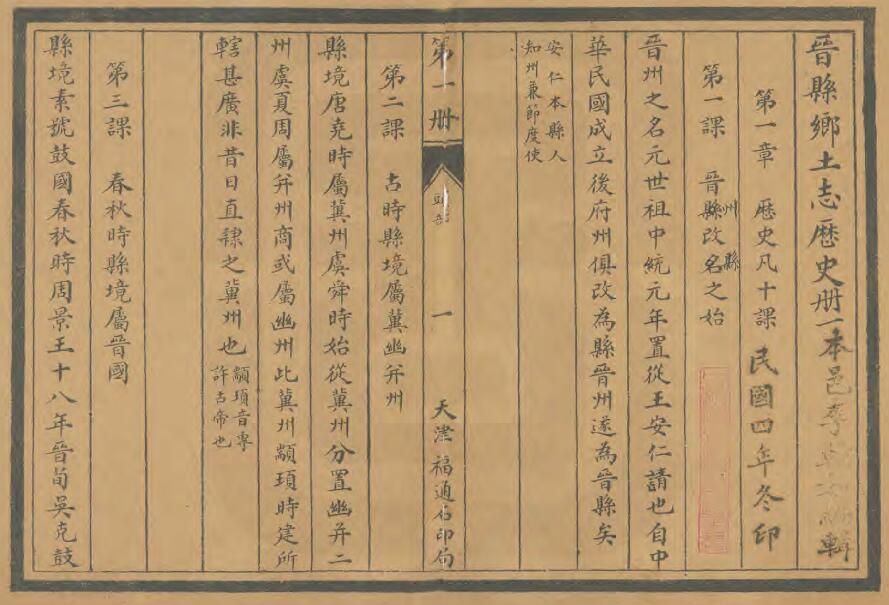 晉縣鄉土志歷史册一本邑李輯
第一章　歷史凡十課　民國四年冬印
第一課　晉縣改名之始
州　縣
晉州之名元世祖中統元年置從王安仁請也自中
華民國成立後府州俱改為縣晉州遂為晉縣矣
安仁本縣人
知州兼節度使
第一册　一　天津福通石印局
第二課　古時縣境屬冀幽并州
縣境唐堯時屬冀州虞舜時始從冀州分置幽并二
州虞夏周屬并州商或屬幽州此冀州顓頊時建所
轄甚廣非昔日直隸之冀州也
顓頊音專
許古帝也
第三課　春秋時縣境屬晉國
縣境素號鼓國春秋時周景王十八年晉荀吳克鼓